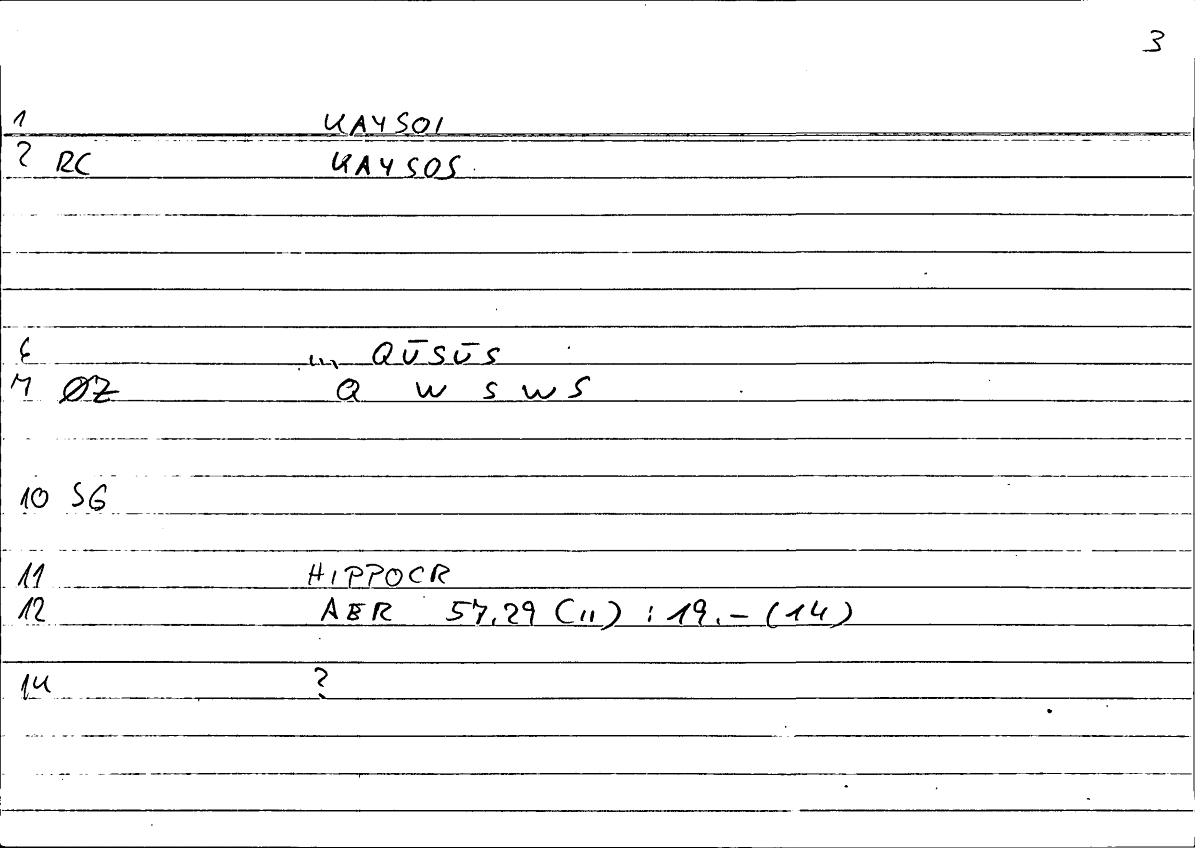 3
1 KAYSOI
2 RC KAYSOS
6 ... QŪSŪS
7 ØZ Q W S W S
10 SG
11 HIPPOCR
12 AER 57,29 (11) : 19.– (14)
14 ?